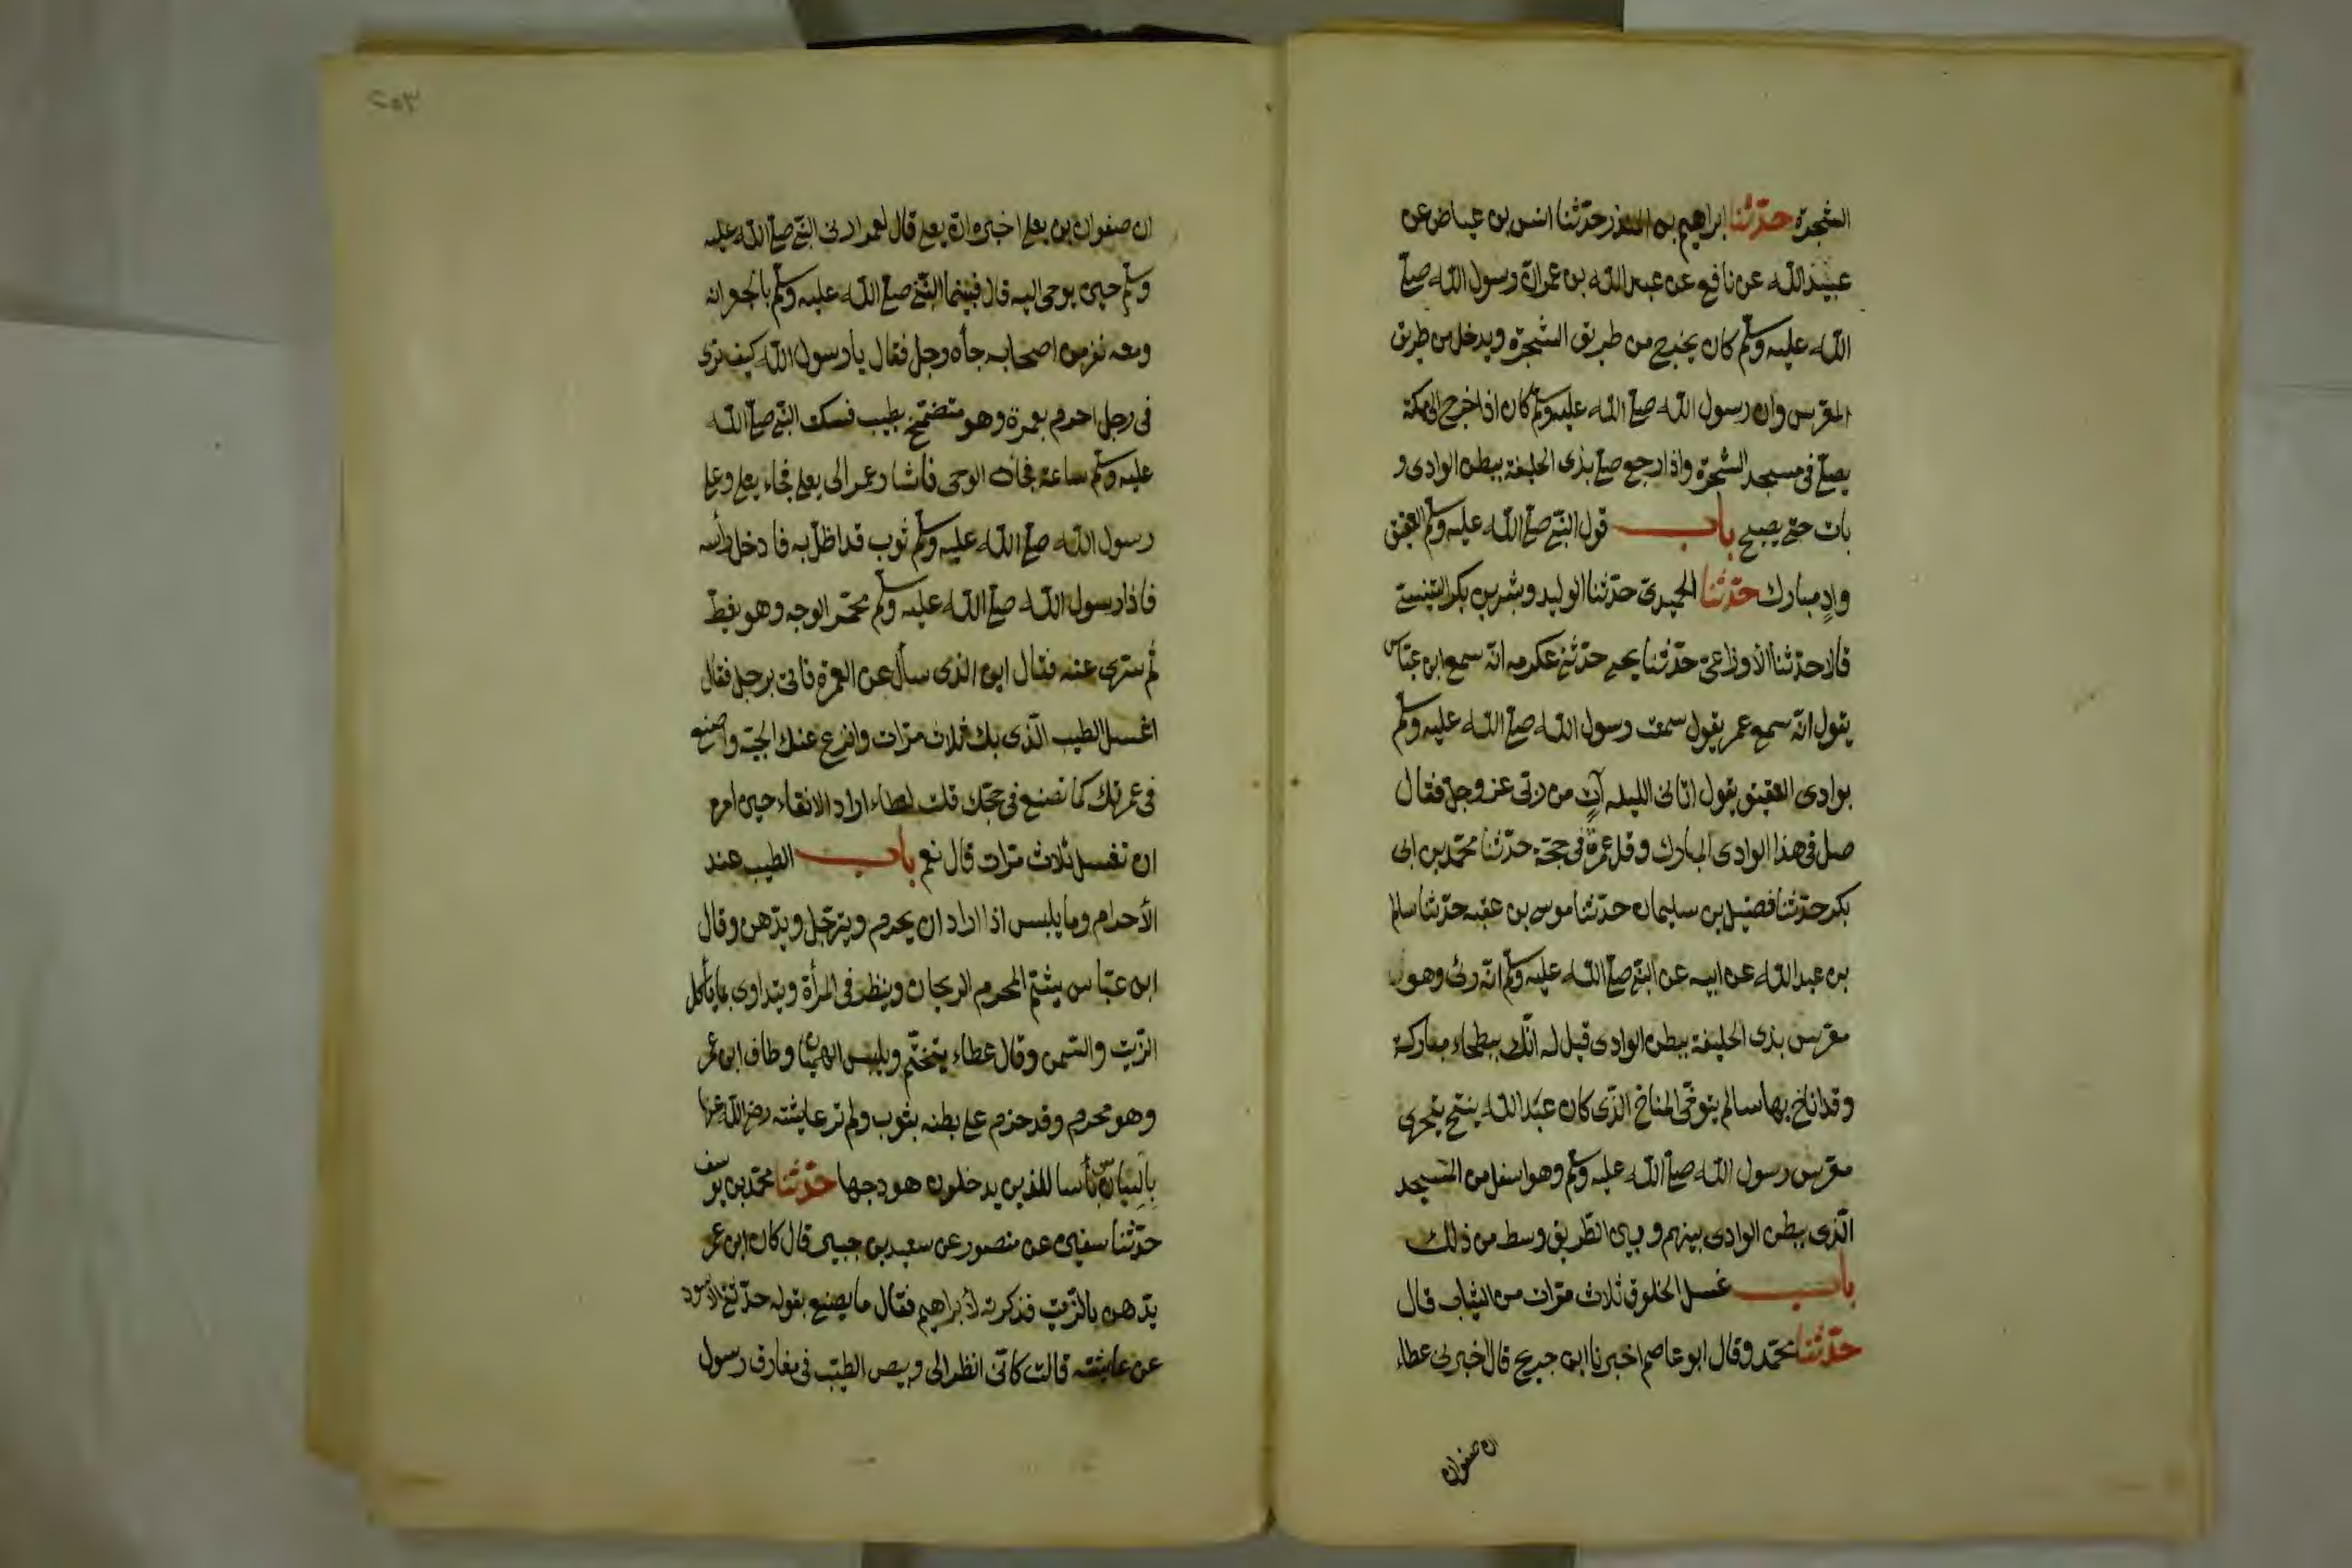 الشجرة حدّثنا ابراهيم بن المنذر حدّثنا انس بن عياض عن
عبيد الله عن نافع عن عبد الله بن عمر انّ رسول الله صلى
الله عليه وسلم كان يخرج من طريق الشجرة ويدخل من طريق
المعرّس وان رسول الله صلى الله عليه وسلم كان اذا خرج الى مكة
يصلّى فى مسجد الشجرة واذا رجع صلى بذى الحليفة ببطن الوادى و
بات حتى يصبح باب قول النبى صلى الله عليه وسلم العقيق
وادٍ مبارك حدّثنا الحميدىّ حدّثنا الوليد وبشر بن بكر التنيسى
قالا حدّثنا الأوزاعىّ حدّثنا يحيى حدّثنى عكرمه انّه سمع ابن عبّاس
يقول انّه سمع عمر يقول سمعت رسول الله صلى الله عليه وسلم
بوادى العقيق يقول اتانى الليله آتٍ من ربّى عز وجل فقال
صل فى هذا الوادى المبارك وقل عمرة فى حجّة حدّثنا محمّد بن ابى
بكر حدّثنا فضيل بن سليمان حدّثنا موسى بن عقبه حدّثنا سالم
بن عبد الله عن ابيه عن النبى صلى الله عليه وسلم انّه رئ وهو
معرّس بذى الحليفة ببطن الوادى قيل له انّك ببطحاء مباركة
وقد اناخ بها سالم يتوخّى المناخ الذّى كان عبد الله ينيخ يتحرى
معرّس رسول الله صلى الله عليه وسلم وهو اسفل من المسجد
الّذى ببطن الوادى بينهم وبين الطّريق وسط من ذلك
باب غسل الخلوق ثلاث مرّات من الثياب قال
حدّثنا محمّد وقال ابو عاصم اخبرنا ابن جريج قال اخبرنى عطاء
ان صفوان
٢٥٣
ان صفوان بن يعلى اخبره انّ يعلى قال لعمر ارنى النبى صلى الله عليه
وسلم حين يوحى اليه قال فبينما النبى صلى الله عليه وسلم بالجعرانه
ومعه نفر من اصحابه جأه رجل فقال يا رسول الله كيف ترى
فى رجل احرم بعمرة وهو متضمّخ بطيب فسكت النبى صلى الله
عليه وسلم ساعة فجأه الوحى فأشار عمر الى يعلى فجاء يعلى وعلى
رسول الله صلى الله عليه وسلم ثوب قد اظلّ به فادخل رأسه
فاذا رسول الله صلى الله عليه وسلم محمّر الوجه وهو يغطّ
ثم سرّى عنه فقال اين الذى سأل عن العمرة فاتى برجل فقال
اغسل الطيب الّذى بك ثلاث مرّات وانزع عنك الجبّة واصنع
فى عمرتك كما تصنع فى حجّتك قلت لعطاء اراد الانقاء حين امره
ان تغسل ثلاث مرّات قال نعم باب الطيب عند
الأحرام وما يلبس اذا اراد ان يحرم ويترجّل ويدّهن وقال
ابن عبّاس يشمّ المحرم الريحان وينظر فى المرأة ويتداوى بما يأكل
الزّيت والسّمن وقال عطاء يتختّم ويلبس الهميان وطاف ابن عمر
وهو محرم وقد حزم على بطنه بثوب ولم تر عايشة رضى الله عنها
بالتبان بأسا للذين يدخلون هودجها حدّثنا محمّد بن يوسف
حدّثنا سفين عن منصور عن سعيد بن جبير قال كان ابن عمر
يدّهن بالزّيت فذكرته لأبراهيم فقال ما يصنع بقوله حدّثنى الأسود
عن عايشة قالت كانّى انظر الى وبيص الطيّب فى مفارق رسول